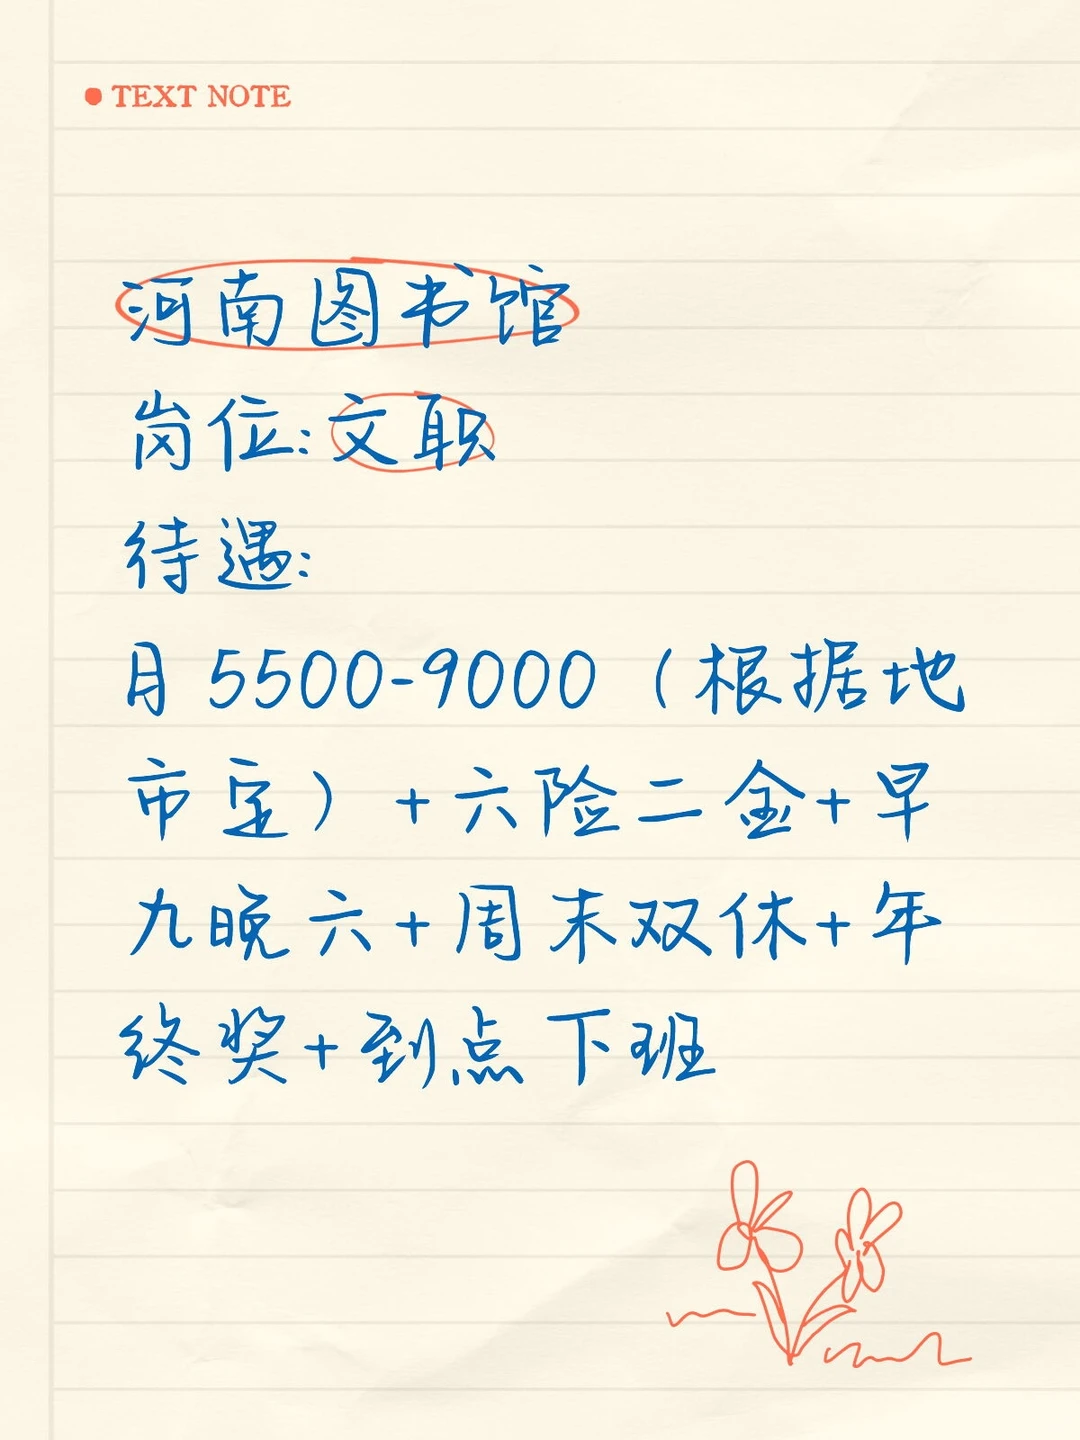 TEXT NOTE
河南图书馆
岗位:文职
待遇:
月5500-9000（根据地
市定）+六险二金+早
九晚六+周末双休+年
终奖+到点下班